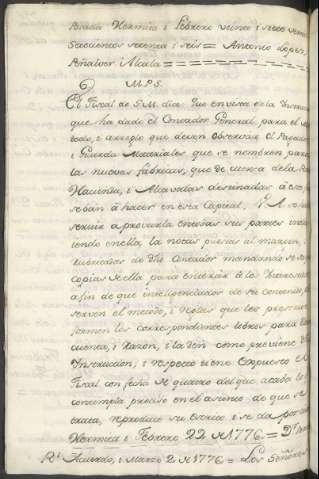 Havana Febrero veinte i siete de mil
Setecientos setenta i seis = Antonio Lopez
Peñalver i Alcala =
M. P. S.
El Fiscal de S. M. dice: Que en vista de la Instruccion
que ha dado el Contador General, para el
todo, i arreglo que deven observar el Pagador
i Guarda Materiales, que se nombren para
las nuevas fabricas, que de cuenta de la R
Hacienda, i Alcavalas destinadas à este
se ban à hacer en esta Capital,
servir aprovarla en todas sus partes
tiendo en ella, las notas puestas al margen,
rubricadas de dho Contador mandando se
copias de ella para entregar à los
a fin de que inteligenciados de su contenido,
serven el metodo, i reglas que les prescrive
formen los correspondientes libros para la
cuenta, i razon, i la den como previene
Instruccion; i respecto tiene expuesto el
Fiscal con fecha de quatro del que acaba lo q
contempla preciso en el asunto de que se
trata, reproduce su escrito, i se da por
Febrero 22 de 1776 =
Rl Acuerdo, i Marzo 2 de 1776 = Los Señores